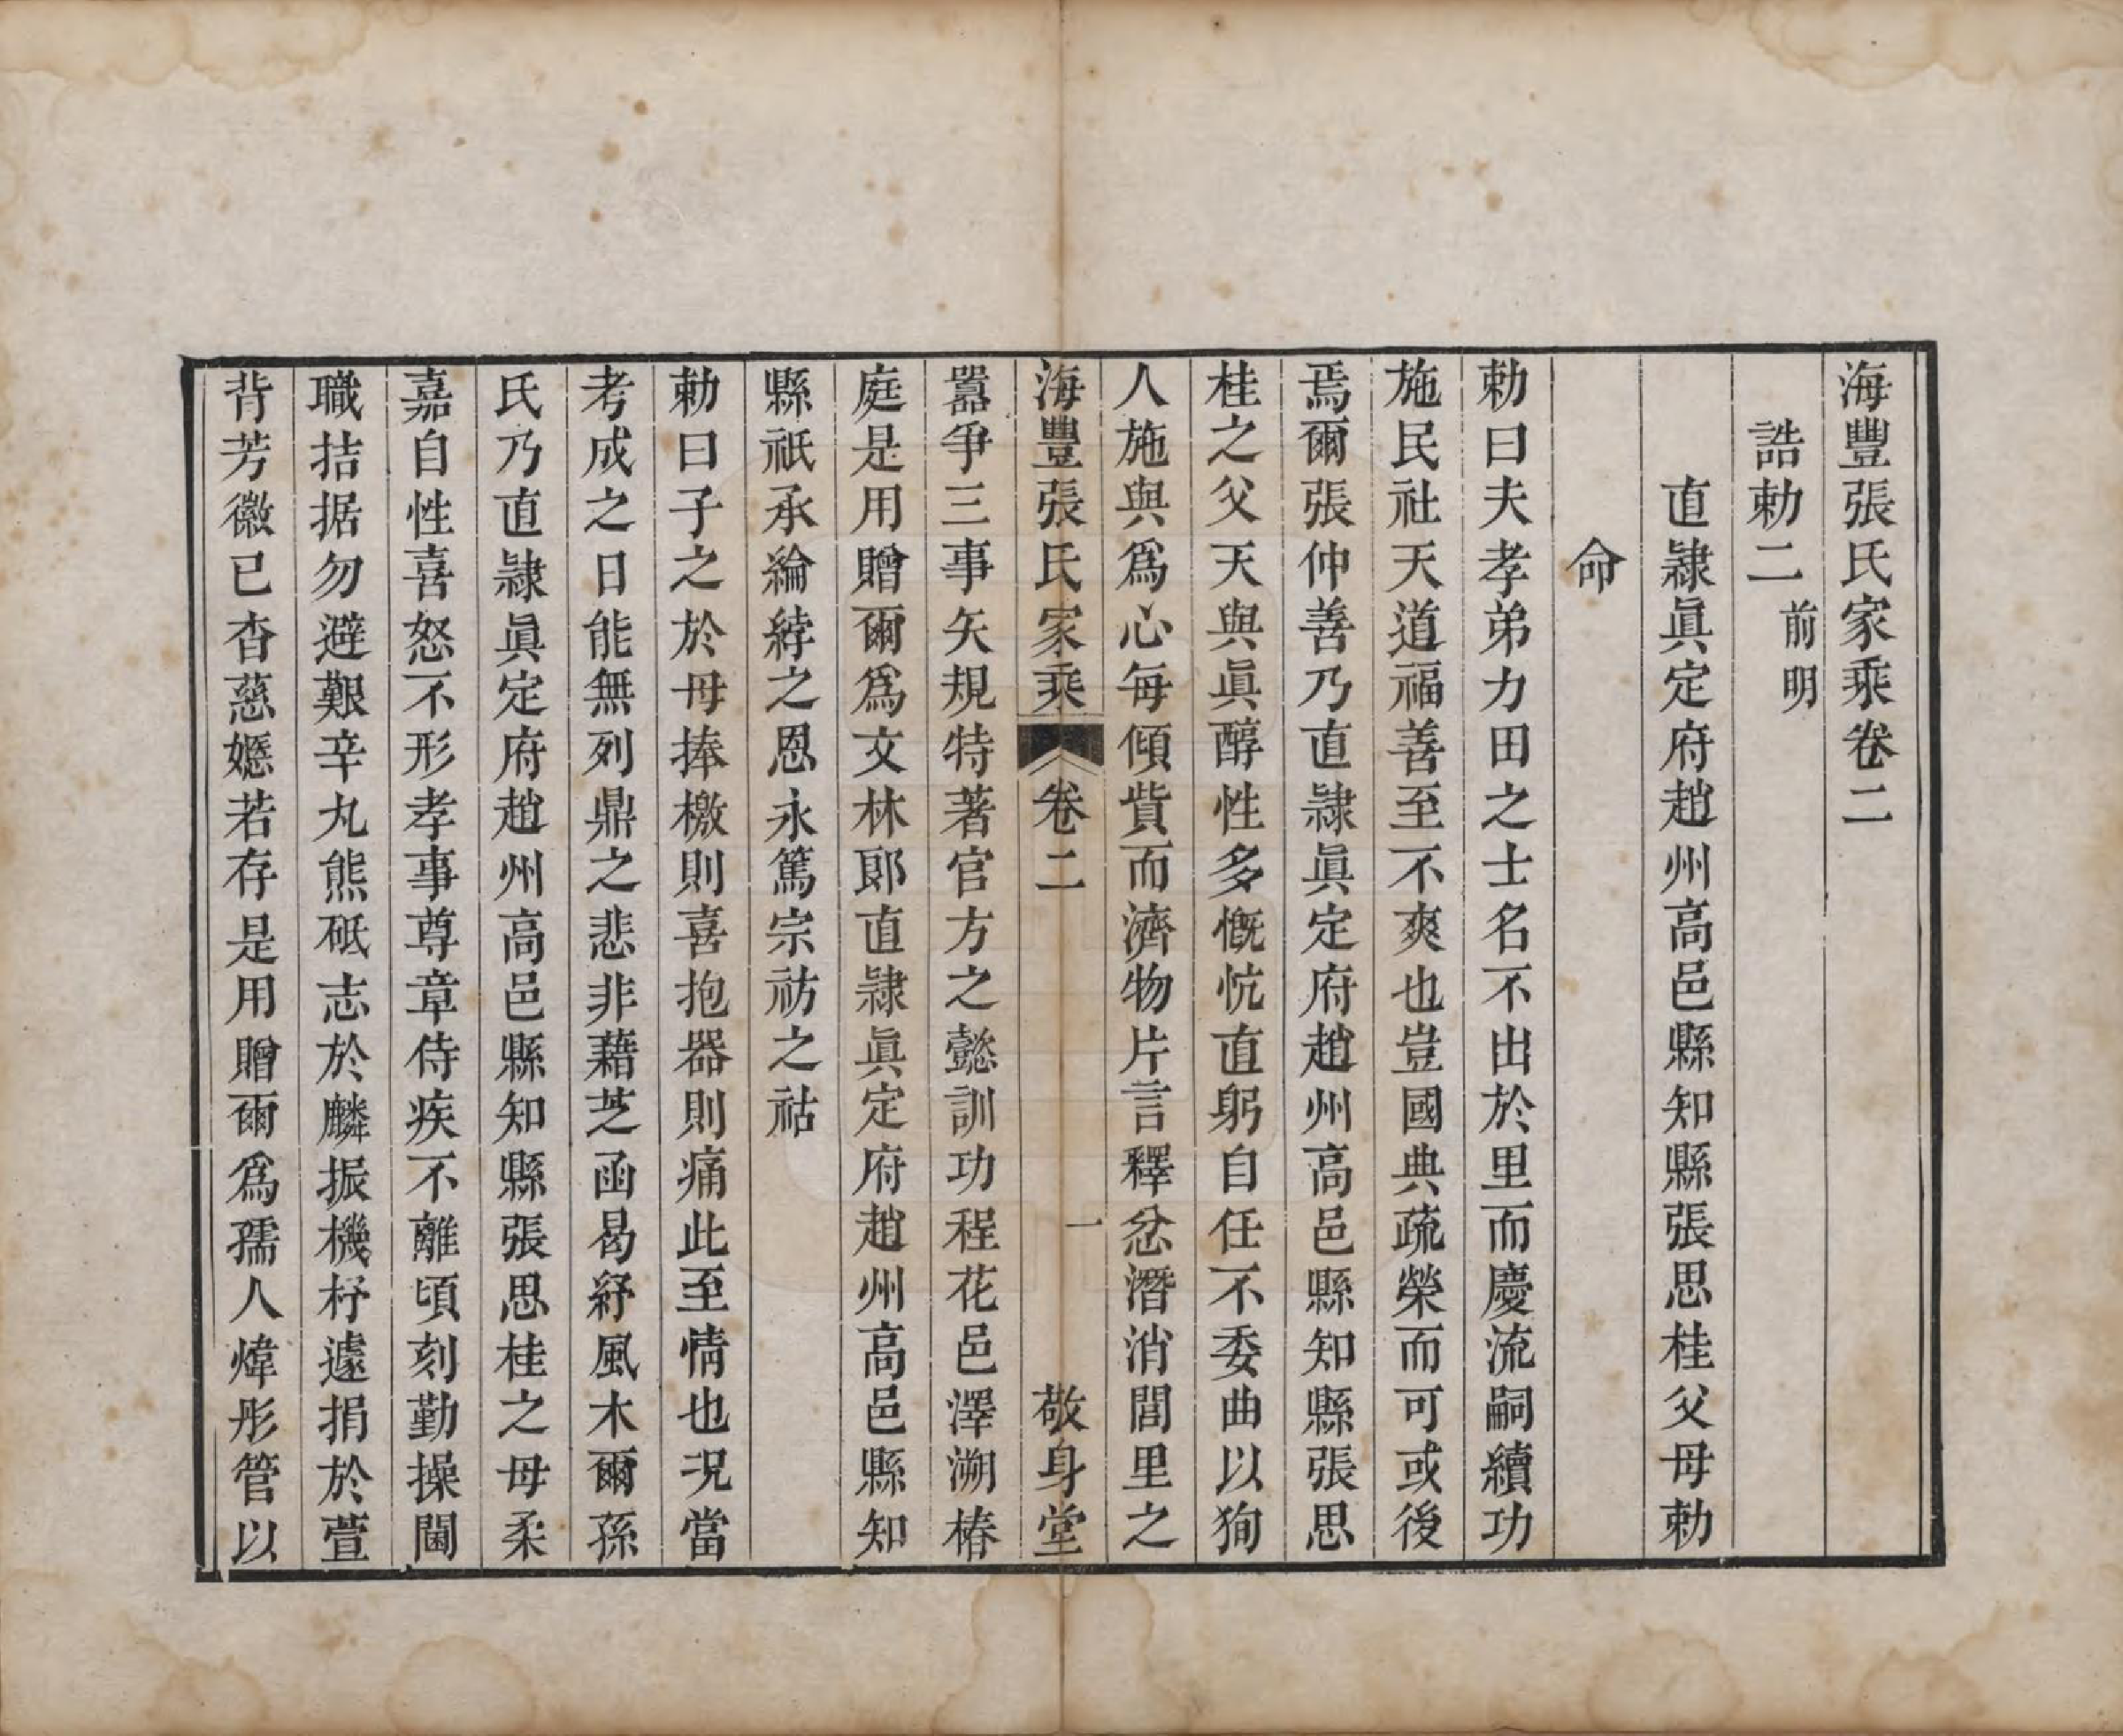 海豐張氏家乘卷二
誥勅二前明
直隷眞定府趙州高邑縣知縣張思桂父母勅
命
勅曰夫孝弟力田之士名不出於里而慶流嗣續功
施民社天道福善至不爽也豈國典疏榮而可或後
焉爾張仲善乃直隷眞定府趙州高邑縣知縣張思
桂之父天與眞醇性多慨忼直躬自任不委曲以狥
人施與爲心每傾貲而濟物片言釋忿潛消閭里之
海豐張氏家乘 卷二 一 敬身堂
嚚爭三事矢規特著官方之懿訓功程花邑澤溯椿
庭是用贈爾爲文林郞直隷眞定府趙州高邑縣知
縣祇承綸綍之恩永篤宗祊之祜
勅曰子之於母捧檄則喜抱器則痛此至情也况當
考成之日能無列鼎之悲非藉芝函曷紓風木爾孫
氏乃直隷眞定府趙州高邑縣知縣張思桂之母柔
嘉自性喜怒不形孝事尊章侍疾不離頃刻勤操閫
職拮据勿避艱辛丸熊砥志於麟振機杼遽捐於萱
背芳徽已杳慈嬺若存是用贈爾爲孺人煒彤管以